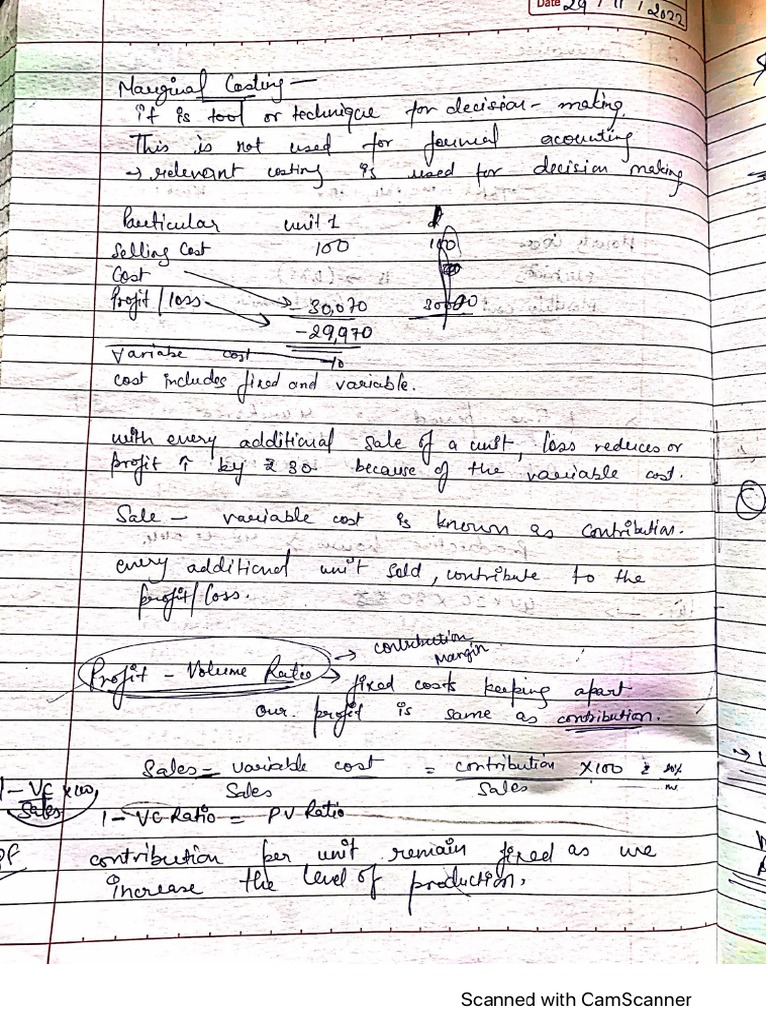 Date 29 / 11 / 2022
Marginal Costing —
it is tool or technique for decision - making.
This is not used for journal acounting
→ relevant costing is used for decision making
Particular unit 1
Selling Cost 100 100
Cost
Profit / loss - 30,070 30000
- 29,970
Variabe cost 70
cost includes fixed and variable.
with every additional sale of a unit, loss reduces or
profit ↑ by ₹ 30 because of the variable cost.
Sale - variable cost is known as contribution.
every additional unit sold, contribute to the
profit / loss.
Profit - Volume Ratio → contribution
Margin
→ fixed costs keeping apart
our profit is same as contribution.
Sales - variable cost = contribution × 100
Sales Sales
1 - VC × 100
Sales
1 - VC Ratio = PV Ratio
contribution per unit remain fixed as we
increase the level of production.
Scanned with CamScanner